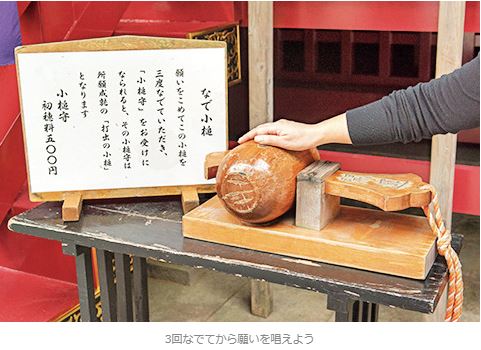 なで小槌
願いをこめてこの小槌を
三度なでていただき、
「小槌守」をお受けに
なられると、その小槌守は
所願成就の「打出の小槌」
となります
小槌守
初穂料五〇〇円
3回なでてから願いを唱えよう